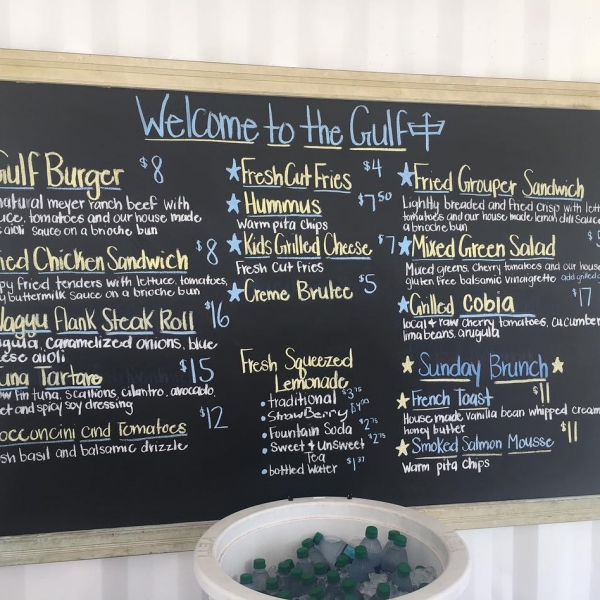 Welcome to the Gulf
Gulf Burger $8
natural meyer ranch beef with
tomatoes and our house made
aioli sauce on a brioche bun
Chicken Sandwich $8
fried tenders with lettuce, tomatoes,
buttermilk sauce on a brioche bun
Wagyu Flank Steak Roll $16
caramelized onions, blue
aioli
Tuna Tartare $15
fin tuna, scallions, cilantro, avocado,
and spicy soy dressing
Bocconcini and Tomatoes $12
basil and balsamic drizzle
Fresh Cut Fries $4
Hummus $7.50
warm pita chips
Kids Grilled Cheese $7
Fresh Cut Fries
Creme Brulee $5
Fresh Squeezed
Lemonade
• traditional $3.75
• StrawBerry $4.00
• Fountain Soda $2.75
• Sweet & UnSweet $2.75
Tea
• bottled Water
Fried Grouper Sandwich
Lightly breaded and fried crisp with
tomatoes and our house made lemon dill Sauce
a brioche bun
Mixed Green Salad
Mixed greens, cherry tomatoes and our house
gluten free balsamic vinaigrette add
Grilled Cobia $17
local & raw cherry tomatoes, cucumber
lima beans, arugula
Sunday Brunch
French Toast $11
House made vanilla bean whipped cream
honey butter
Smoked Salmon Mousse $11
Warm pita chips